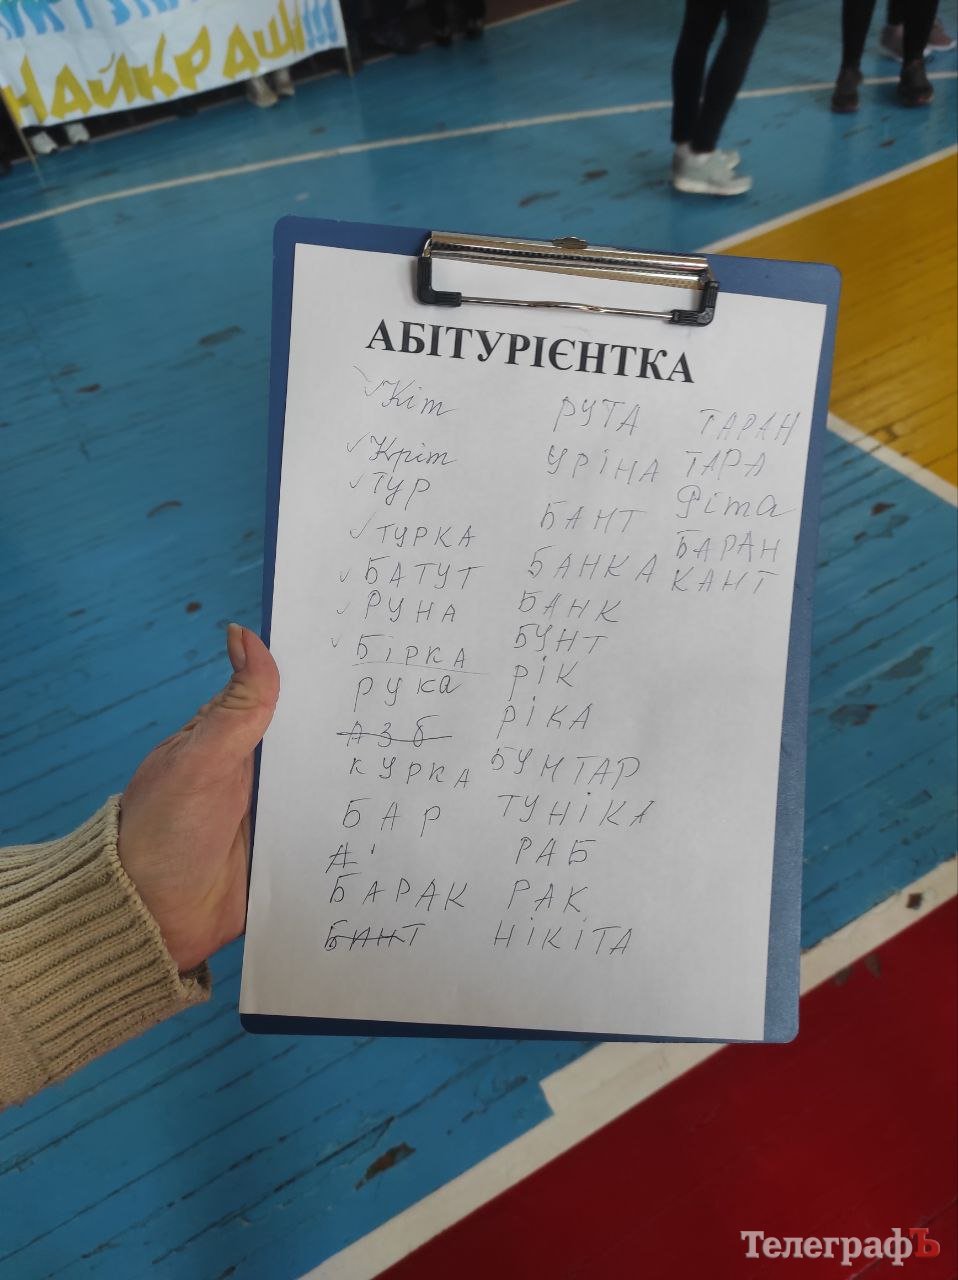 НАЙКРАЩІ!!!
АБІТУРІЄНТКА
Кіт
Кріт
ТУР
ТУРКА
БАТУТ
РУНА
БІРКА
рука
АЗБ
КУРКА
БАР
А
БАРАК
БАНТ
РУТА
УРІНА
БАНТ
БАНКА
БАНК
БУНТ
РІК
РІКА
БУНТАР
ТУНІКА
РАБ
РАК
НІКІТА
ТАРАН
ТАРА
Ріта
БАРАН
КАНТ
ТелеграфЪ